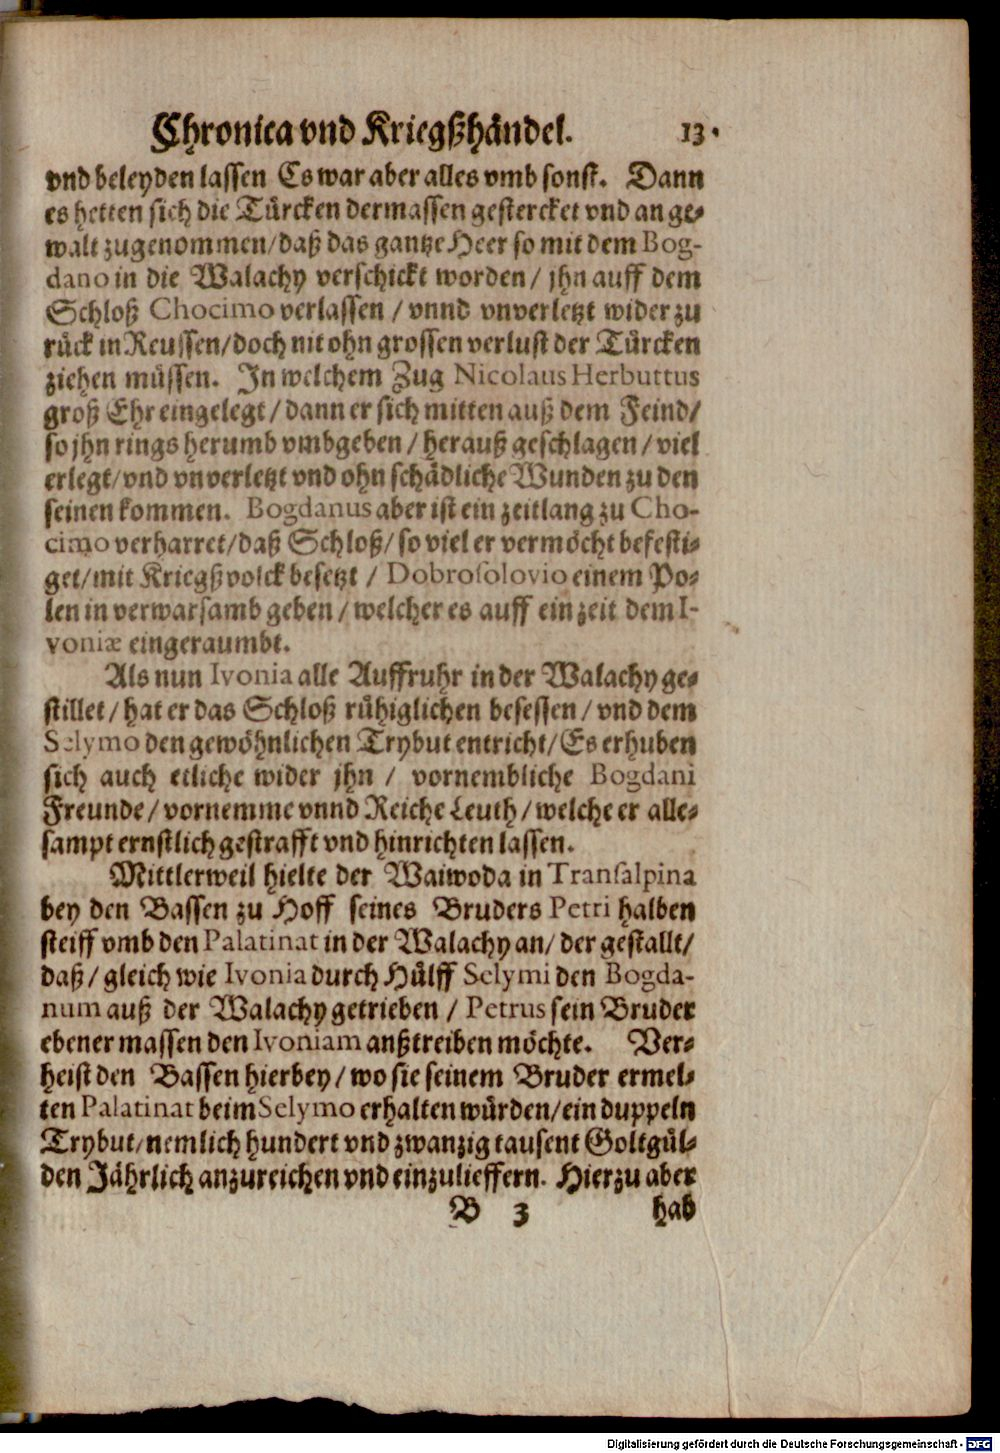 Chronica vnd Kriegßhändel. 13.
vnd beleyden lassen Es war aber alles vmb sonst. Dann
es hetten sich die Türcken dermassen gestercket vnd an ge-
walt zugenommen/daß das gantze Heer so mit dem Bog-
dano in die Walachy verschickt worden/ jhn auff dem
Schloß Chocimo verlassen / vnnd vnverletzt wider zu
rück in Reussen/doch nit ohn grossen verlust der Türcken
ziehen müssen. In welchem Zug Nicolaus Herbuttus
groß Ehr eingelegt/dann er sich mitten auß dem Feind/
so jhn rings herumb vmbgeben/herauß geschlagen/viel
erlegt/vnd vnverletzt vnd ohn schädliche Wunden zu den
seinen kommen. Bogdanus aber ist ein zeitlang zu Cho-
cimo verharret/daß Schloß/so viel er vermöcht befesti-
get/mit Kriegßvolck besetzt / Dobrosolovio einem Po-
len in verwarsamb geben/welcher es auff ein zeit dem I-
voniæ eingeraumbt.
Als nun Ivonia alle Auffruhr in der Walachy ge-
stillet/hat er das Schloß rühiglichen besessen/vnd dem
Selymo den gewöhnlichen Trybut entricht/Es erhuben
sich auch etliche wider jhn / vornembliche Bogdani
Freunde/vornemme vnnd Reiche Leuth/welche er alle-
sampt ernstlich gestrafft vnd hinrichten lassen.
Mittlerweil hielte der Waiwoda in Transalpina
bey den Bassen zu Hoff seines Bruders Petri halben
steiff vmb den Palatinat in der Walachy an/der gestallt/
daß/gleich wie Ivonia durch Hülff Selymi den Bogda-
num auß der Walachy getrieben / Petrus sein Bruder
ebener massen den Ivoniam anßtreiben möchte. Ver-
heist den Bassen hierbey/wo sie seinem Bruder ermel-
ten Palatinat beim Selymo erhalten würden/ein duppeln
Trybut/nemlich hundert vnd zwanzig tausent Goltgül-
den Jährlich anzureichen vnd einzulieffern. Hierzu aber
B 3 hab
Digitalisierung gefördert durch die Deutsche Forschungsgemeinschaft - DFG